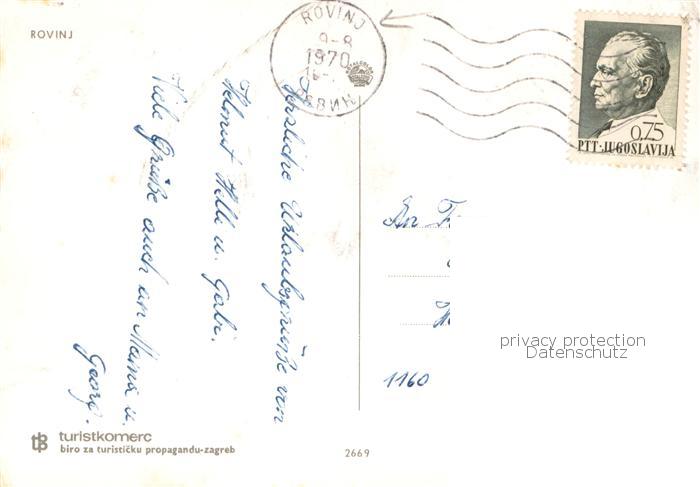 ROVINJ
ROVINJ
9-8
1970
РОВИЊ
0,75
PTT·JUGOSLAVIJA
Herzliche Urlaubsgrüße von
Helmut Hilli u. Gabi.
Viele Grüße auch an Mama u.
Georg.
An F
1160
privacy protection
Datenschutz
turistkomerc
biro za turističku propagandu-zagreb
2669